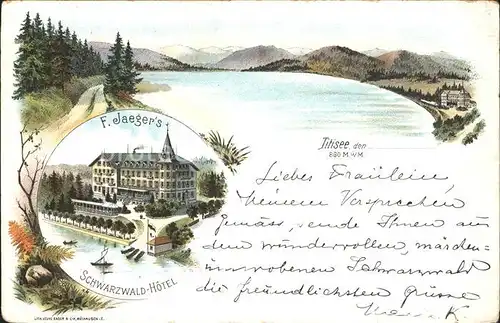 F. Jaeger's
SCHWARZWALD-HÔTEL
Titisee, den
880 M.ü.M.
Liebes Fräulein,
Meinem Versprechen
gemäss, sende Ihnen aus
dem wundervollen, märchen-
umwobenen Schwarzwald
die freundlichsten Grüsse